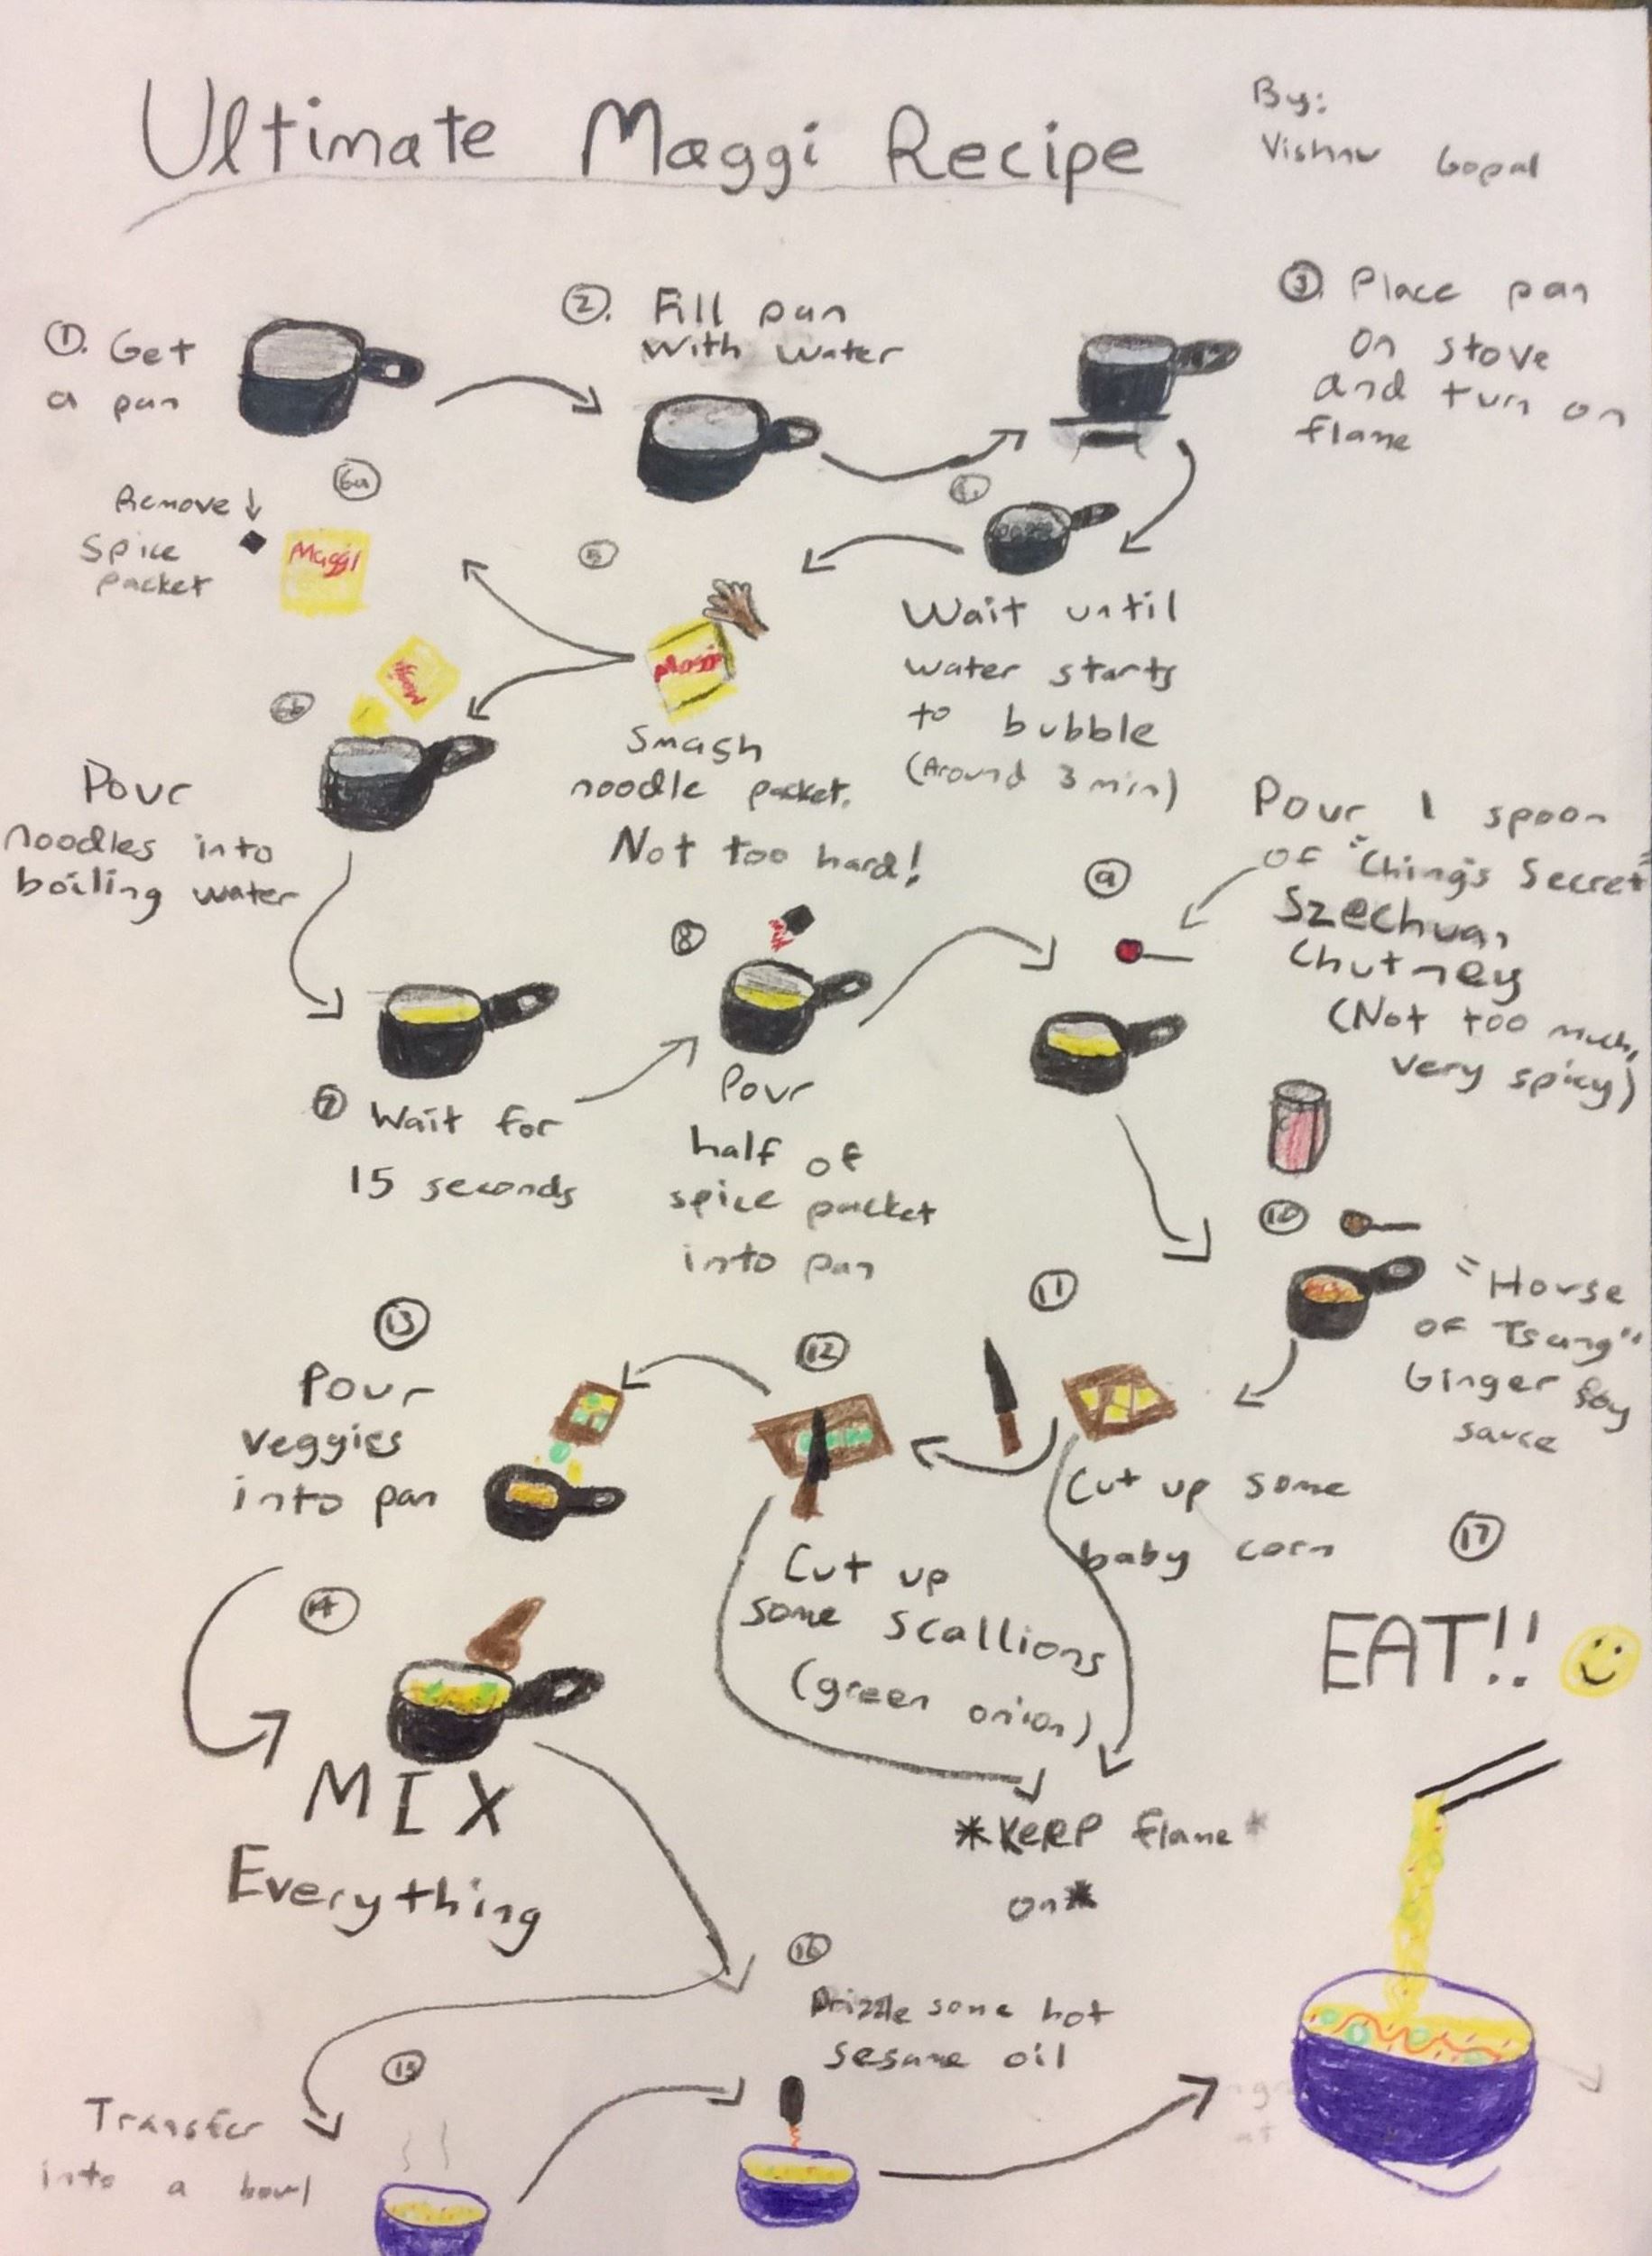 Ultimate Maggi Recipe
By:
Vishnu Gopal
①. Get
a pan
②. Fill pan
with water
③. Place pan
on stove
and turn on
flame
4.
Wait until
water starts
to bubble
(Around 3 min)
⑤
Maggi
Smash
noodle packet.
Not too hard!
6a
Remove ↓
spice
packet
Maggi
6b
Maggi
Pour
noodles into
boiling water
⑦ Wait for
15 seconds
⑧
Pour
half of
spice packet
into pan
⑨
Pour 1 spoon
of "Ching's Secret"
Szechuan
Chutney
(Not too much,
very spicy)
⑩
"House
of Tsang"
Ginger Soy
sauce
⑪
Cut up some
baby corn
⑫
Cut up
some scallions
(green onion)
*KEEP flame*
on*
⑬
Pour
veggies
into pan
⑭
MIX
Everything
⑮
Transfer
into a bowl
⑯
Drizzle some hot
sesame oil
⑰
EAT!!